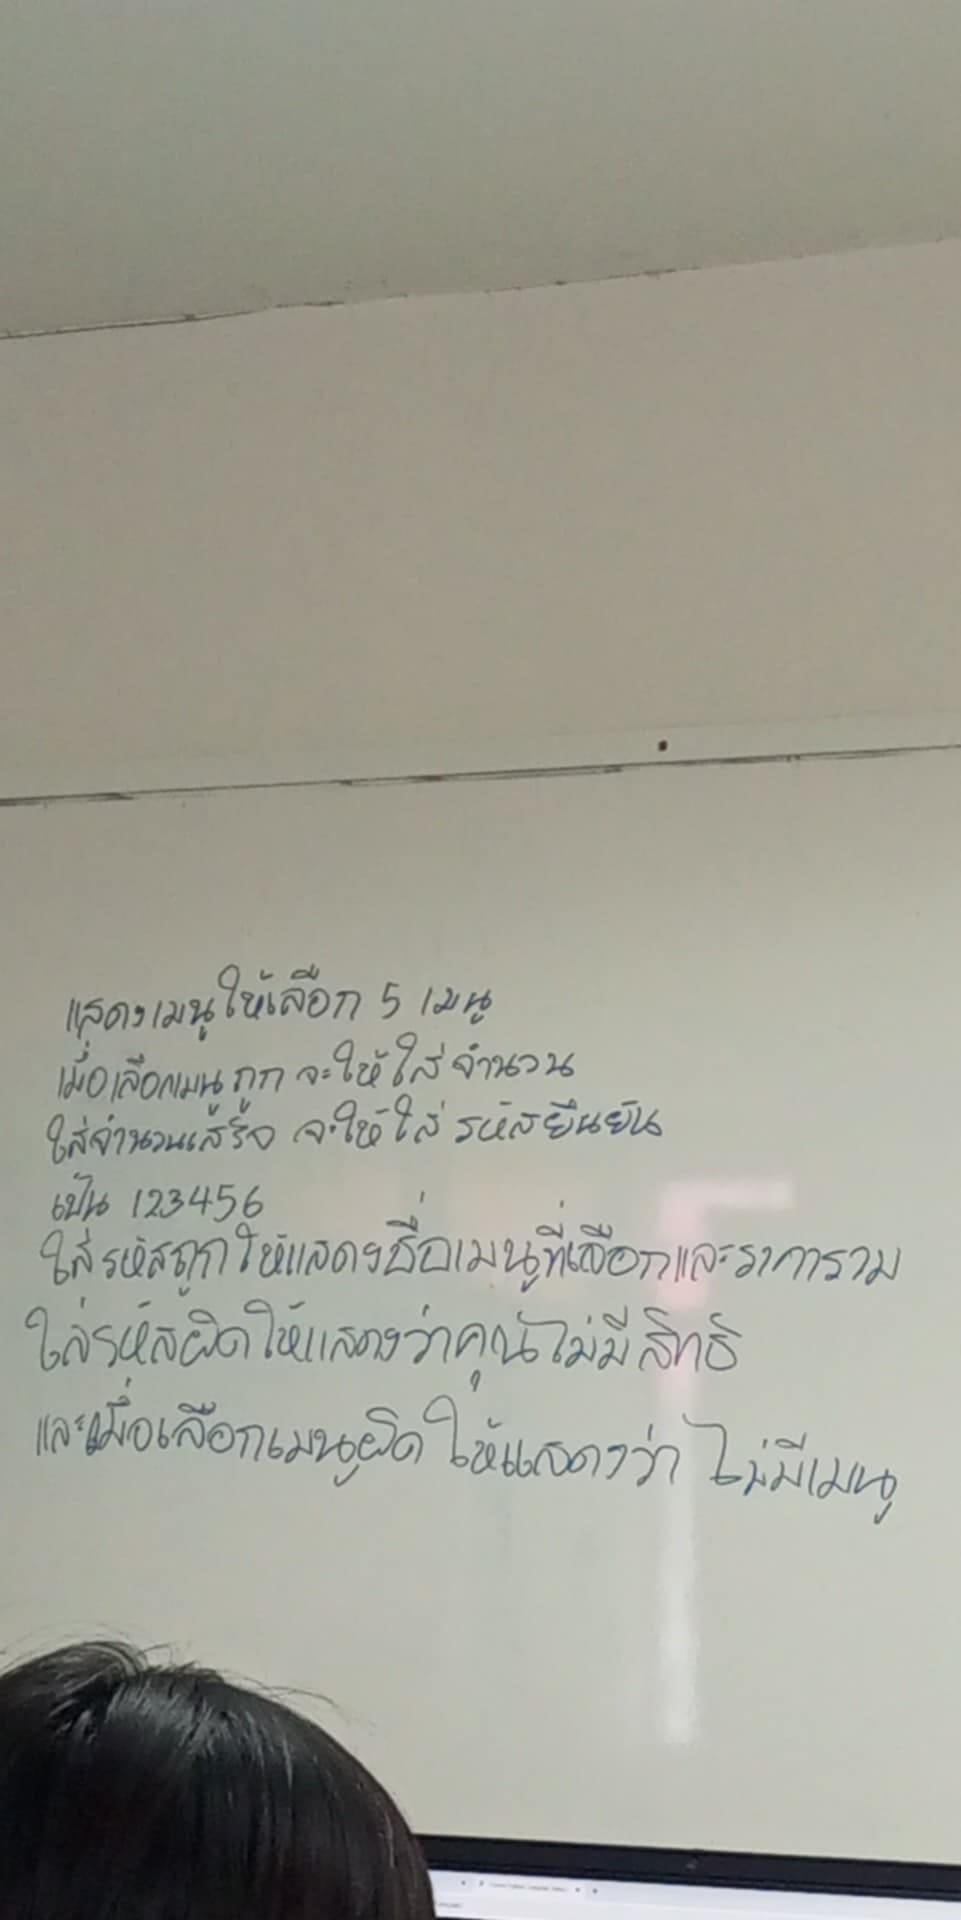 แสดงเมนูให้เลือก 5 เมนู
เมื่อเลือกเมนูถูก จะให้ใส่จำนวน
ใส่จำนวนเสร็จ จะให้ใส่ รหัสยืนยัน
เป็น 123456
ใส่รหัสถูกให้แสดงชื่อเมนูที่เลือกและราคารวม
ใส่รหัสผิดให้แสดงว่าคุณไม่มีสิทธิ
และเมื่อเลือกเมนูผิด ให้แสดงว่า ไม่มีเมนู